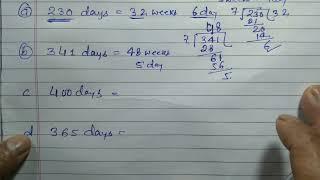 a 230 days = 32 weeks 6 day
7 230 32
21
20
14
6
b 341 days = 48 weeks
5 day
48
7 341
28
61
56
5
c 400 days =
d 365 days =